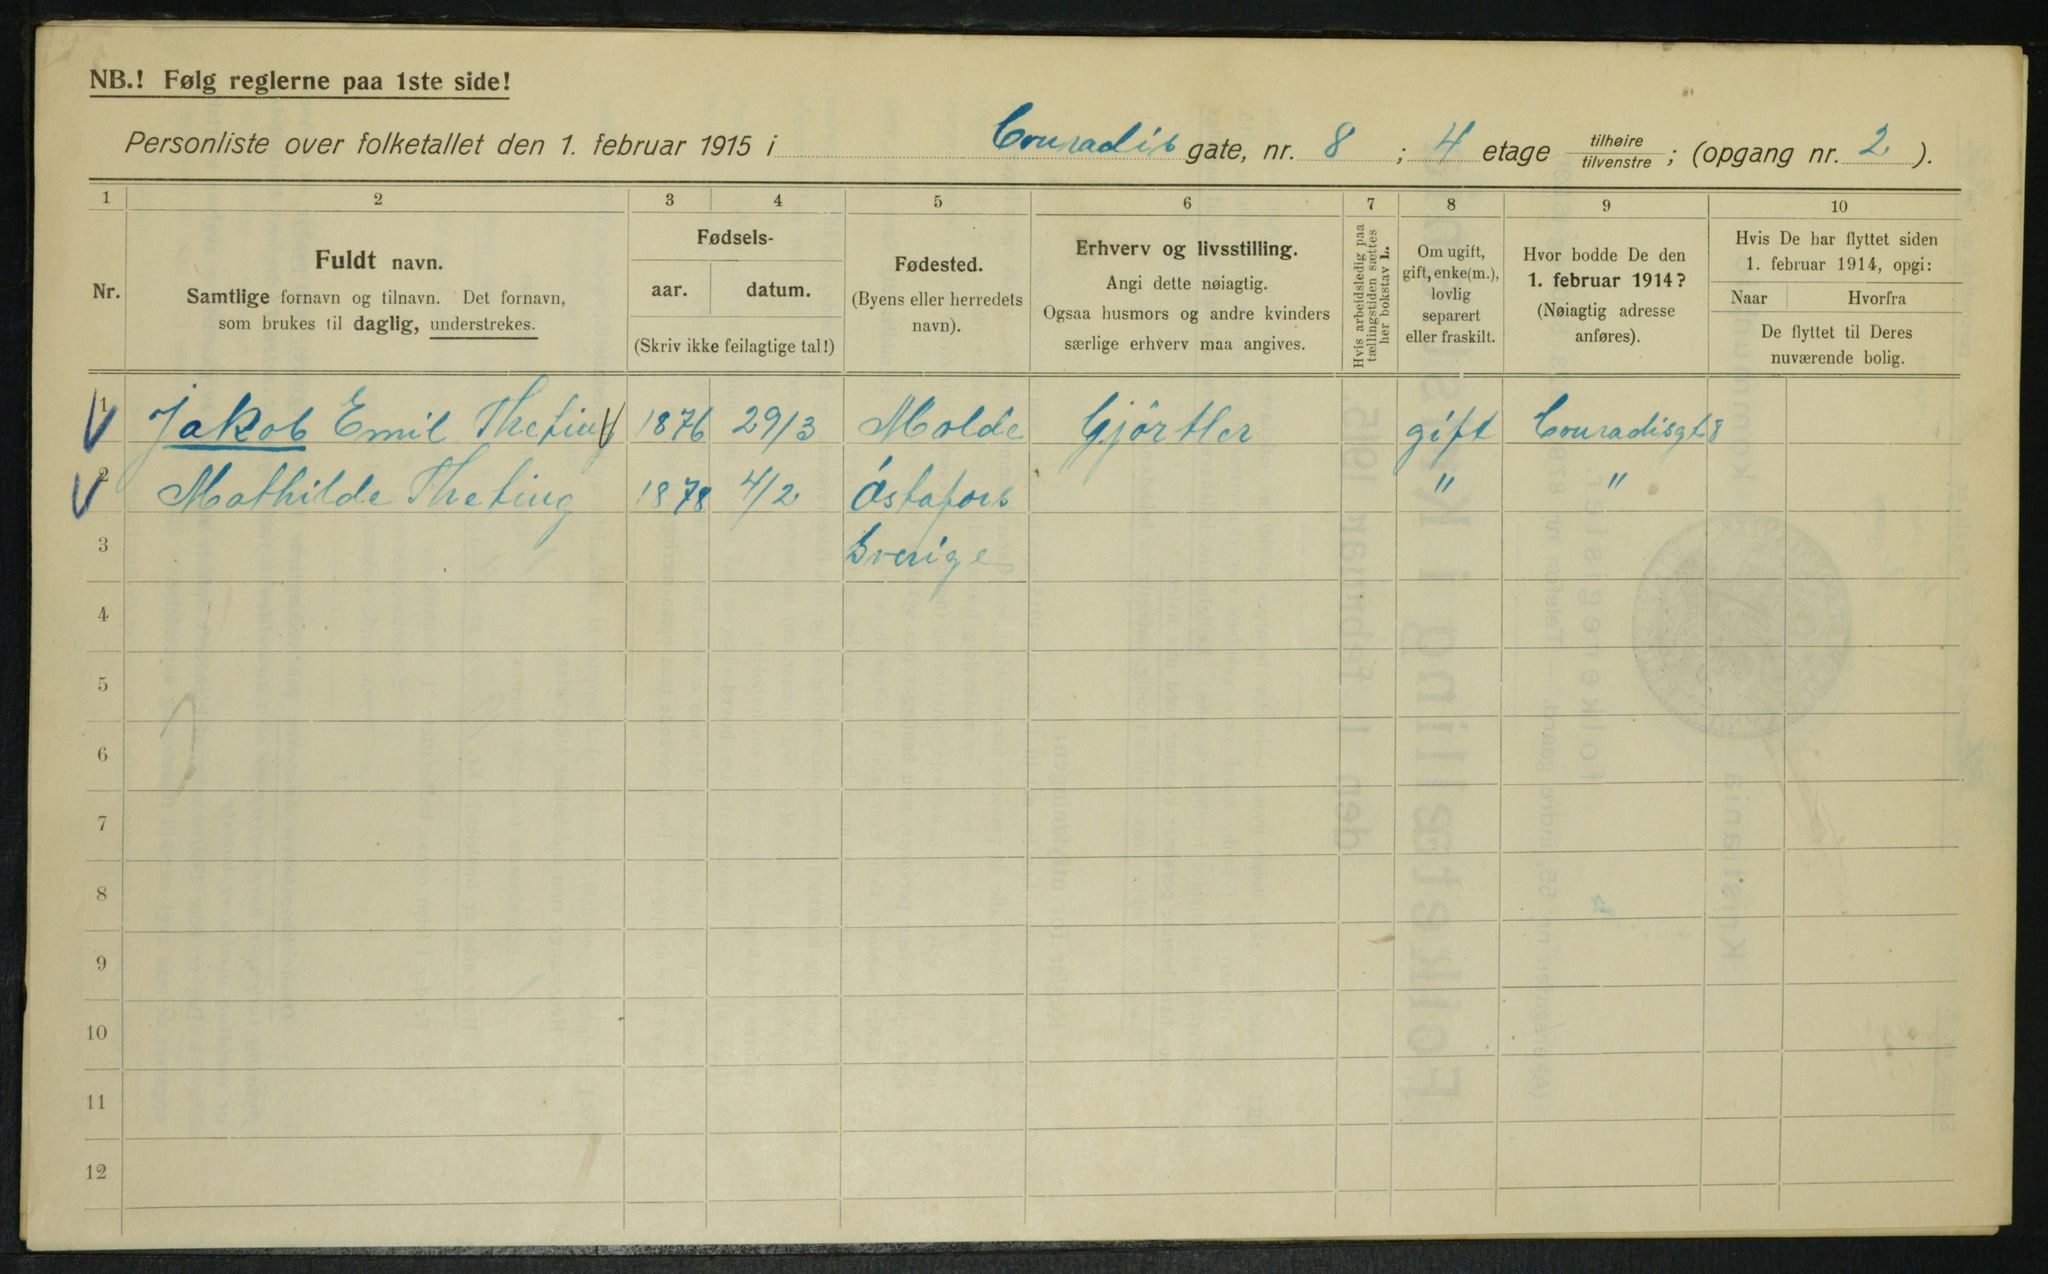 NB.! Følg reglerne paa 1ste side!
Personliste over folketallet den 1. februar 1915 i Conradis gate, nr. 8 ; 4 etage tilhøire / tilvenstre ; (opgang nr. 2 ).
1 2 3 4 5 6 7 8 9 10
Nr.
Fuldt navn.
Samtlige fornavn og tilnavn. Det fornavn,
som brukes til daglig, understrekes.
Fødsels-
aar. datum.
(Skriv ikke feilagtige tal!)
Fødested.
(Byens eller herredets
navn).
Erhverv og livsstilling.
Angi dette nøiagtig.
Ogsaa husmors og andre kvinders
særlige erhverv maa angives.
Hvis arbeidsledig paa
tællingstiden sættes
her bokstav L.
Om ugift,
gift, enke(m.),
lovlig
separert
eller fraskilt.
Hvor bodde De den
1. februar 1914?
(Nøiagtig adresse
anføres).
Hvis De har flyttet siden
1. februar 1914, opgi:
Naar Hvorfra
De flyttet til Deres
nuværende bolig.
1 Jakob Emil Theting 1876 29/3 Molde Gjörtler gift Conradisgt 8
2 Mathilde Theting 1878 4/2 Östafors " "
3 Sverige
4
5
6
7
8
9
10
11
12